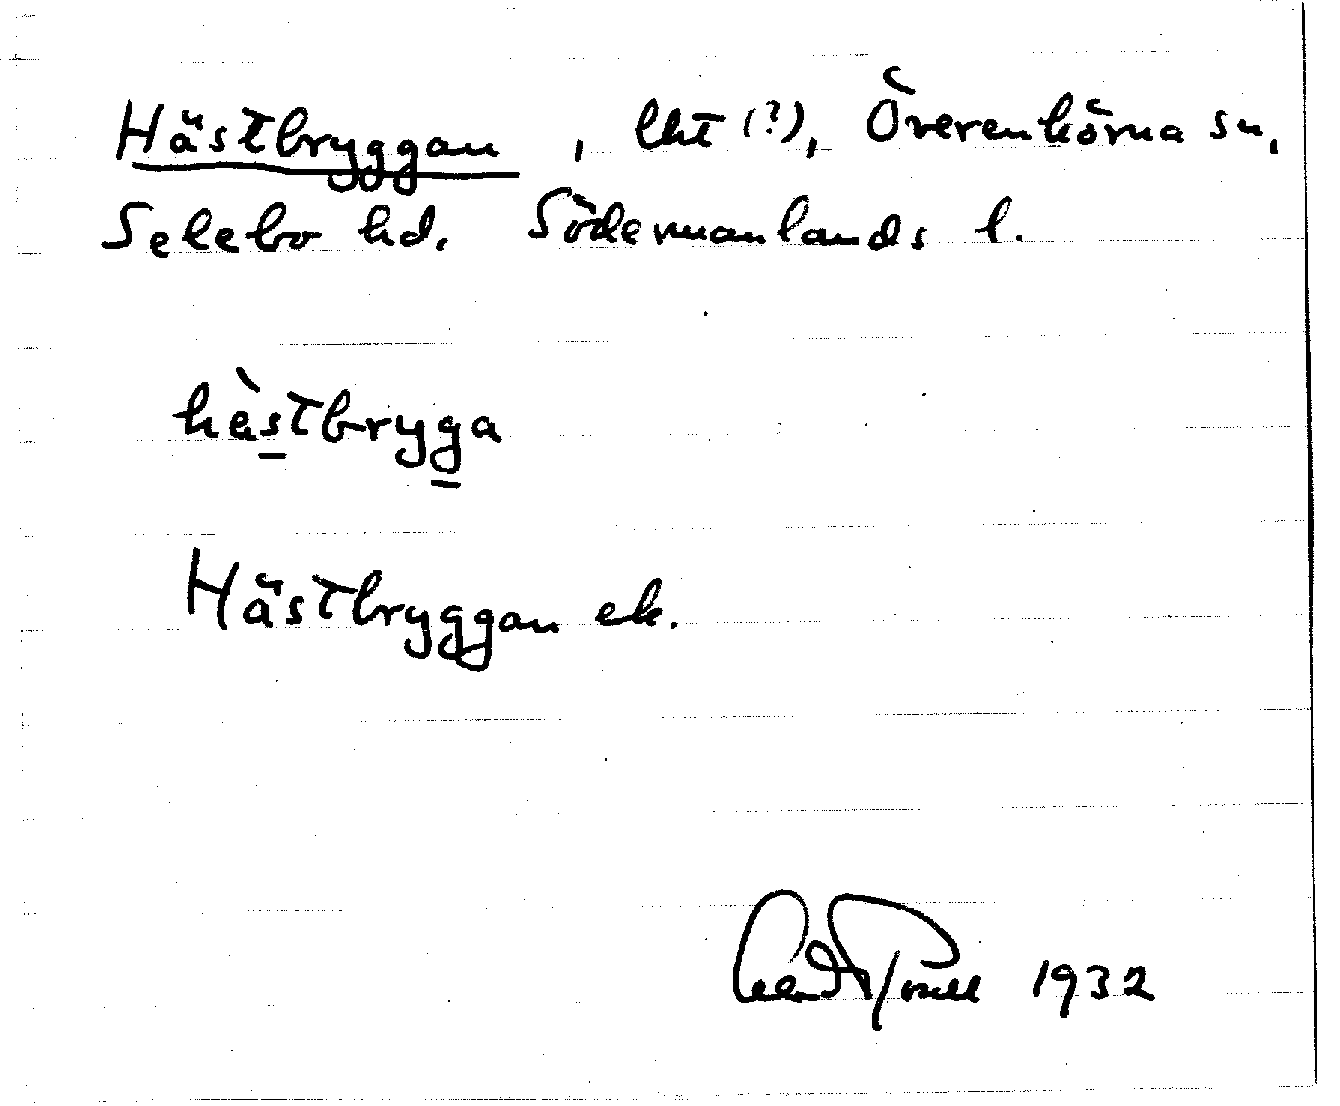 Hästbryggan, lht (?), Överenhörna sn,
Selebo hd. Södermanlands l.
hàstbryga
Hästbryggan ek.
1932